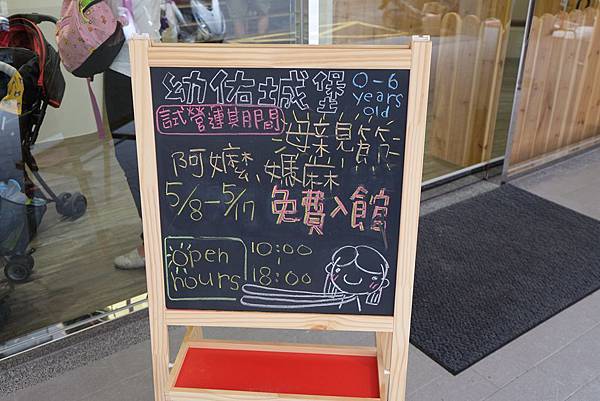 幼佑城堡 0-6 years old
試營運期間 母親節
阿嬤、媽麻
5/8-5/17 免費入館
open hours 10:00 | 18:00